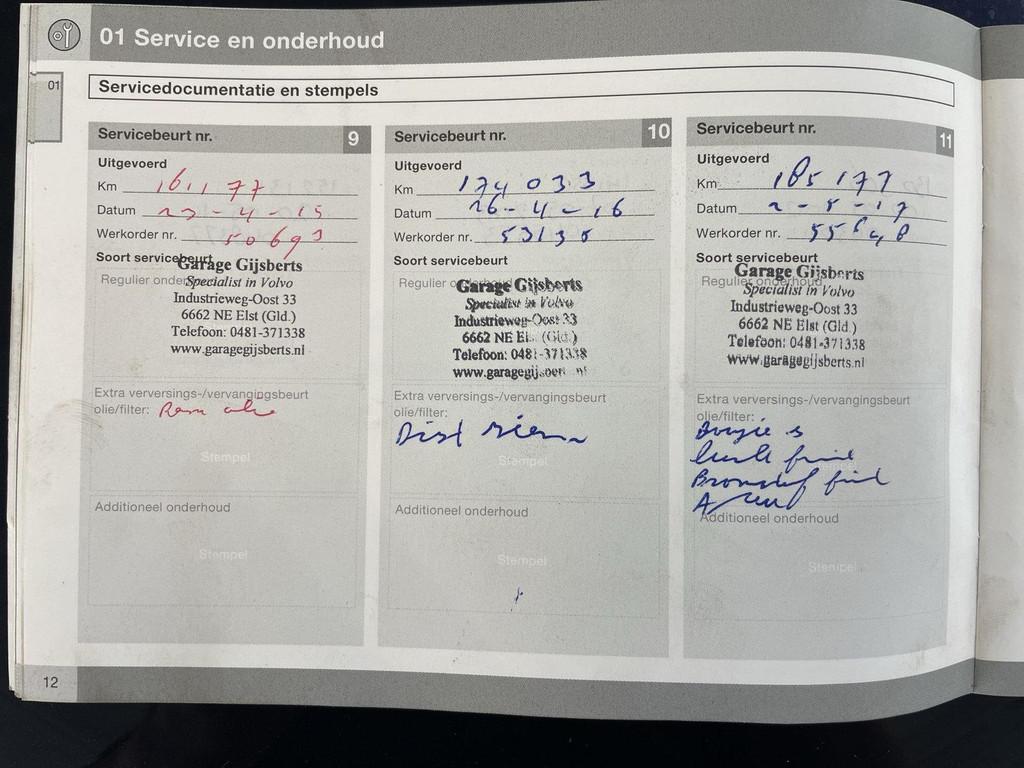 01 Service en onderhoud
01
Servicedocumentatie en stempels
Servicebeurt nr. 9
Uitgevoerd
Km 161177
Datum 23-4-15
Werkorder nr. 50693
Soort servicebeurt
Regulier onderhoud
Garage Gijsberts
Specialist in Volvo
Industrieweg-Oost 33
6662 NE Elst (Gld.)
Telefoon: 0481-371338
www.garagegijsberts.nl
Extra verversings-/vervangingsbeurt
olie/filter: Rem olie
Stempel
Additioneel onderhoud
Stempel
Servicebeurt nr. 10
Uitgevoerd
Km 174033
Datum 26-4-16
Werkorder nr. 53135
Soort servicebeurt
Regulier onderhoud
Garage Gijsberts
Specialist in Volvo
Industrieweg-Oost 33
6662 NE Elst (Gld.)
Telefoon: 0481-371338
www.garagegijsberts.nl
Extra verversings-/vervangingsbeurt
olie/filter:
Dist riem
Stempel
Additioneel onderhoud
Stempel
Servicebeurt nr. 11
Uitgevoerd
Km 185177
Datum 2-5-17
Werkorder nr.
Soort servicebeurt
Regulier onderhoud
Garage Gijsberts
Specialist in Volvo
Industrieweg-Oost 33
6662 NE Elst (Gld.)
Telefoon: 0481-371338
www.garagegijsberts.nl
Extra verversings-/vervangingsbeurt
olie/filter:
Bougies
Brandstof
Additioneel onderhoud
Stempel
12